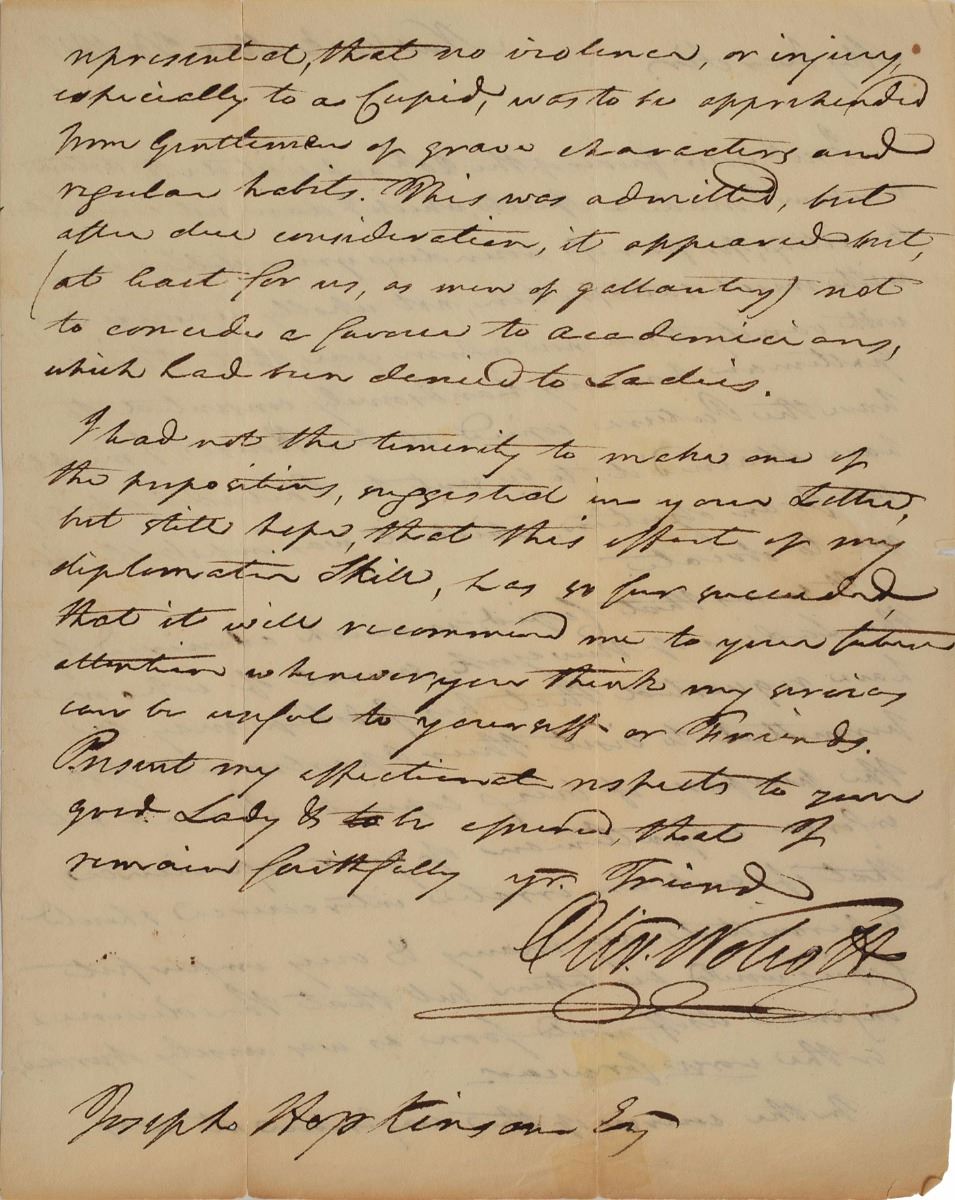 represented, that no violence, or injury,
especially to a Cupid, was to be apprehended
from Gentlemen of grave characters and
regular habits. This was admitted, but
after due consideration, it appeared best,
(at least for us, as men of gallantry) not
to concede a favour to academicians,
which had been denied to Ladies.
I had not the temerity to make one of
the propositions, suggested in your Letter,
but still hope, that this effort of my
diplomatic Skill, has so far succeeded,
that it will recommend me to your future
attention whenever you think my services
can be useful to yourself or Friends.
Present my affectionate respects to your
good Lady & to be assured, that I
remain faithfully yr. Friend
Oliv. Wolcott.
Joseph Hopkinson Esq